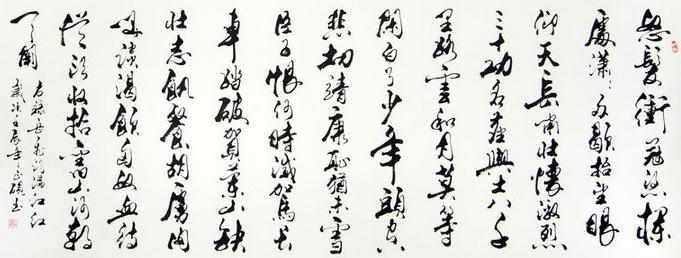 怒髮衝冠憑欄
處瀟瀟雨歇抬望眼
仰天長嘯壯懷激烈
三十功名塵與土八千
里路雲和月莫等
閒白了少年頭空
悲切靖康恥猶未雪
臣子恨何時滅駕長
車踏破賀蘭山缺
壯志飢餐胡虜肉
笑談渴飲匈奴血待
從頭收拾舊山河朝
天闕
右錄岳飛滿江紅
歲次壬辰年